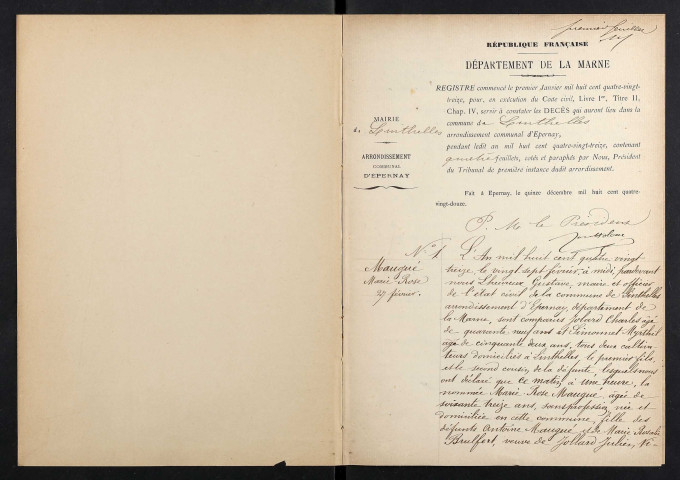 premier feuillet
RÉPUBLIQUE FRANÇAISE
DÉPARTEMENT DE LA MARNE
MAIRIE
de Linthelles
ARRONDISSEMENT
COMMUNAL
D'EPERNAY
REGISTRE commencé le premier Janvier mil huit cent quatre-vingt-
treize, pour, en exécution du Code civil, Livre Ier, Titre II,
Chap. IV, servir à constater les DÉCÈS qui auront lieu dans la
commune de Linthelles
arrondissement communal d'Epernay,
pendant ledit an mil huit cent quatre-vingt-treize, contenant
feuillets, cotés et paraphés par Nous, Président
du Tribunal de première instance dudit arrondissement.
Fait à Epernay, le quinze décembre mil huit cent quatre-
vingt-douze.
P. Mr le Président
N° 1
Mauqué
Marie-Rose
27 février.
L'An mil huit cent quatre vingt
treize, le vingt sept février, à midi, pardevant
nous Lheureux Gustave, maire et officier
de l'état civil de la commune de Linthelles
arrondissement d'Epernay, département de
la Marne, sont comparus Jolard Charles âgé
de quarante neuf ans et Simonnet Myrtheil
âgé de cinquante deux ans, tous deux cultiva-
teurs domiciliés à Linthelles, le premier fils
et le second cousin de la défunte, lesquels nous
ont déclaré que ce matin, à une heure, la
nommée Marie Rose Mauqué, âgée de
soixante treize ans, sans profession, née et
domiciliée en cette commune, fille des
défunts Antoine Mauqué et de Marie
Brulfert, veuve de Jollard Julien,